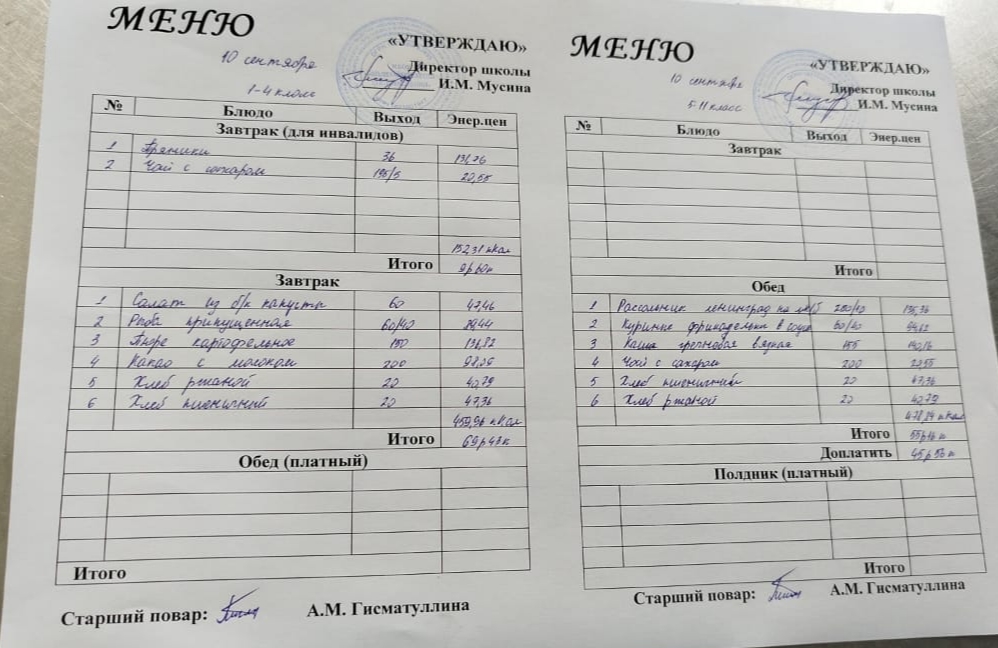 МЕНЮ
«УТВЕРЖДАЮ»
10 сентября
Директор школы
И.М. Мусина
1-4 класс
№ Блюдо Выход Энер.цен
Завтрак (для инвалидов)
1 Пряники 36 131,76
2 Чай с сахаром 195/5 20,55
152,31 кКал
Итого 9р60к
Завтрак
1 Салат из б/к капусты 60 47,46
2 Рыба припущенная 60/40
3 Пюре картофельное 150 136,82
4 Какао с молоком 200
5 Хлеб ржаной 20 40,79
6 Хлеб пшеничный 20 47,36
459,96 кКал
Итого 69р48к
Обед (платный)
Итого
Старший повар: А.М. Гисматуллина
МЕНЮ
«УТВЕРЖДАЮ»
10 сентября
Директор школы
И.М. Мусина
5-11 класс
№ Блюдо Выход Энер.цен
Завтрак
Итого
Обед
1 Рассольник ленинград на 200/10
2 Куриные фрикадельки в соусе
3 Каша гречневая вязкая 155
4 Чай с сахаром 200
5 Хлеб пшеничный 20 47,36
6 Хлеб ржаной 20 40,79
478,84 кКал
Итого
Доплатить 45р56к
Полдник (платный)
Итого
Старший повар: А.М. Гисматуллина